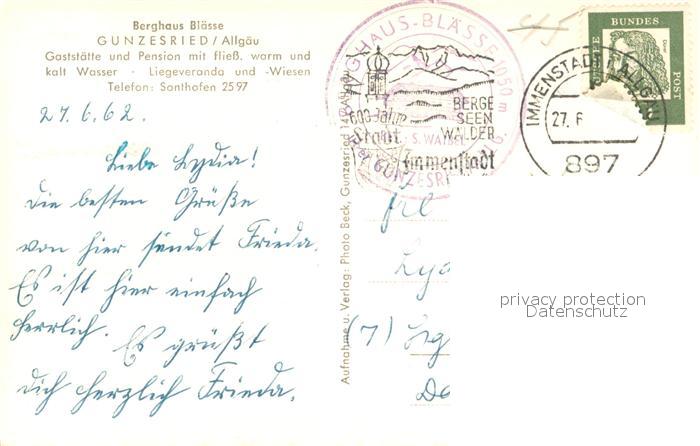 Berghaus Blässe
GUNZESRIED/Allgäu
Gaststätte und Pension mit fließ. warm und
kalt Wasser - Liegeveranda und -Wiesen
Telefon: Sonthofen 2597
27.6.62.
Liebe Lydia!
Die besten Grüße
von hier sendet Frieda.
Es ist hier einfach
herrlich. Es grüßt
dich herzlich Frieda.
Aufnahme u. Verlag: Photo Beck, Gunzesried
BERGHAUS-BLÄSSE 1050 m
GUNZESRI
600 Jahre
Stadt
Immenstadt
BERGE
SEEN
WÄLDER
DEUTSCHE BUNDESPOST
IMMENSTADT i. ALLGÄU
27.6
897
45
Frl
Lyd
(7)
privacy protection
Datenschutz